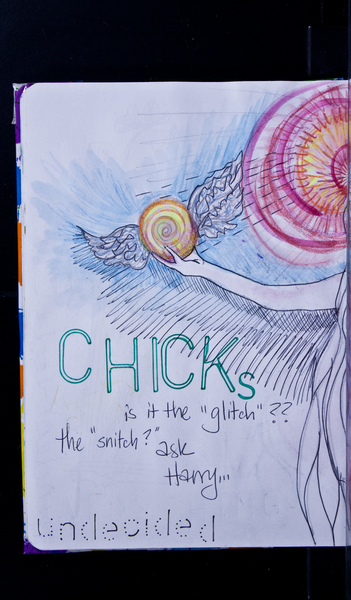 CHICKs
is it the "glitch"??
the "snitch?" ask
Harry...
undecided